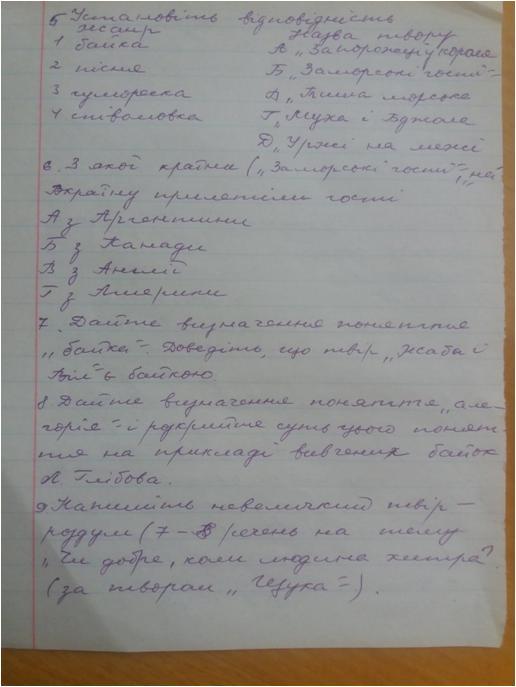 5 Установіть відповідність
жанр Назва твору
1 байка А „Запорожці у короля
2 пісня Б „Заморські гості"
3 гумореска В „Теща морське
4 співомовка Г „Муха і Бджола
Д „Уржі на межі
6. З якої країни („Заморські гості", „на
Вкраїну прилетіли гості
А з Аргентини
Б з Канади
В з Англії
Г з Америки
7. Дайте визначення поняття
„байка". Доведіть, що твір „Жаба і
Віл" є байкою.
8. Дайте визначення поняття „але-
горія" і розкрийте суть цього понят-
тя на прикладі вивчених байок
Л. Глібова.
9 Напишіть невеличкий твір –
роздум (7-8 речень на тему
„Чи добре, коли людина хитра?
(за твором „Щука").